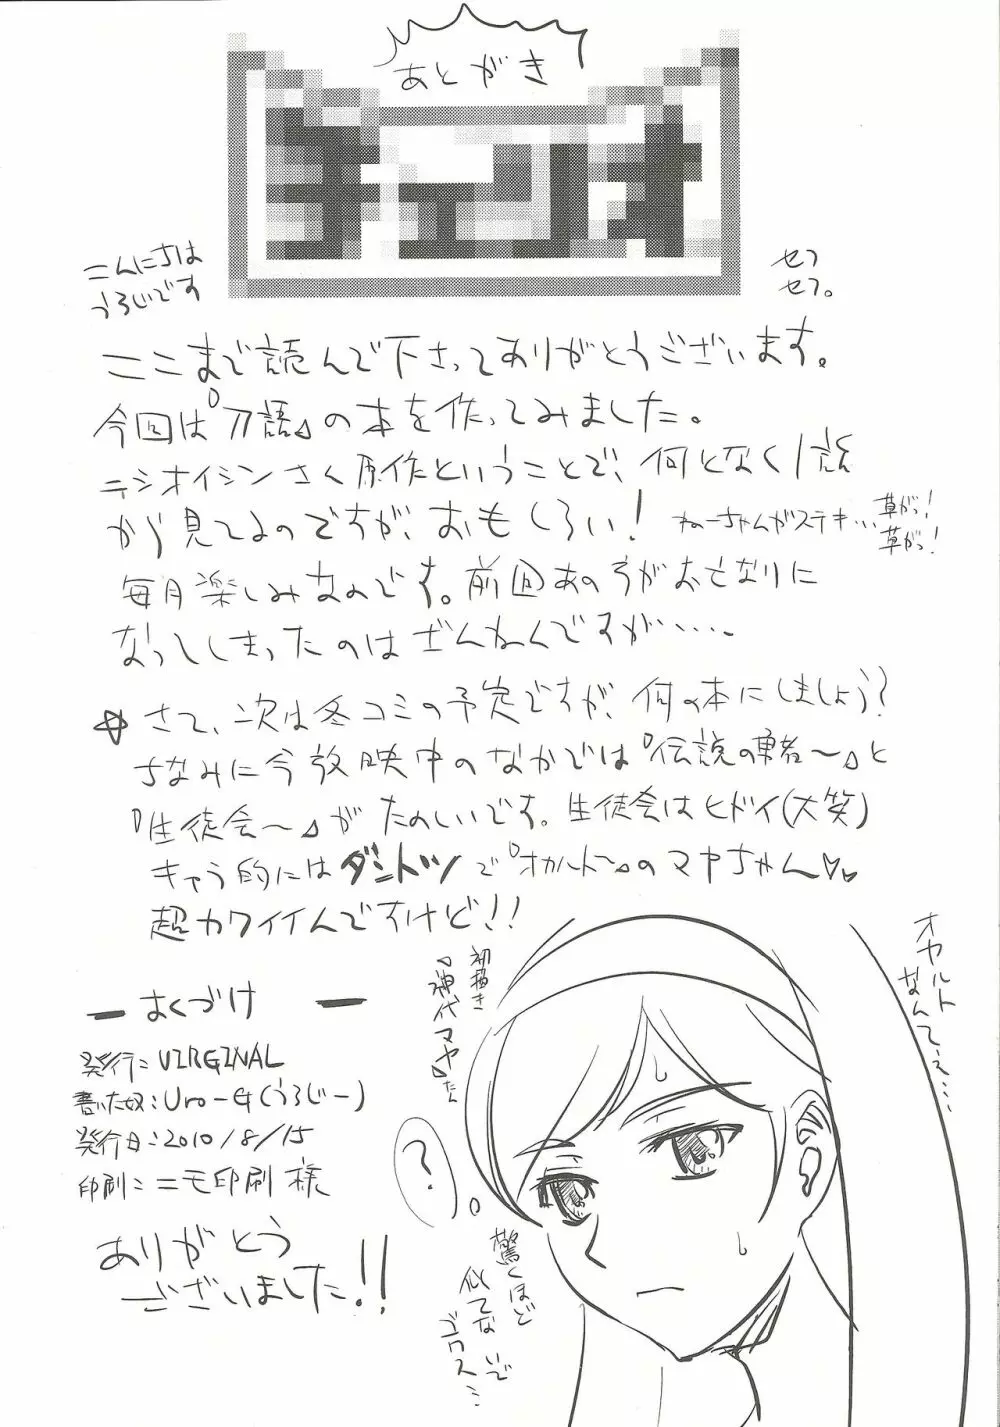 あとがき
チェリオ
こんにちは
うろじです
セフ
セフ。
ここまで読んで下さってありがとうございます。
今回は『刀語』の本を作ってみました。
ニシオイシンさん原作ということで、何となく1話
から見てるのですが、おもしろい!
ねーちゃんがステキ…
草がっ!
草がっ!
毎月楽しみなのです。前回あの子がおとなりに
なってしまったのはざんねんですが・・・・
☆さて、次は冬コミの予定ですが、何の本にしましょう?
ちなみに今放映中のなかでは『伝説の勇者〜』と
『生徒会〜』がたのしいです。生徒会はヒドイ(大笑)
キャラ的にはダントツで『オカルト〜』のマヤちゃん♡♡
超カワイイんですけど!!
初描き
『神代マヤ』たん
オカルト
なんてぇ…
ー おくづけ ー
発行:VIRGINAL
書いた奴:Uro-G(うろじー)
発行日:2010/8/15
印刷:ニモ印刷様
ありがとう
ございました!!
?
驚くほど
似てないで
ゴワス…